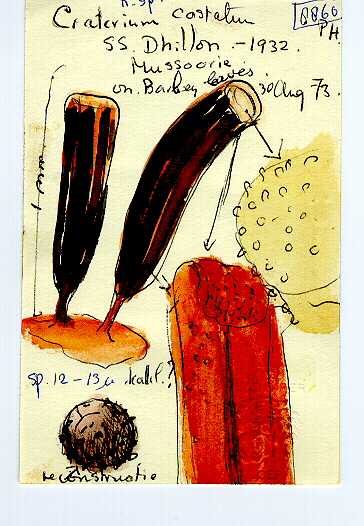 n. sp.
8860
PH
Craterium costatum
SS. Dhillon. - 1932.
Mussoorie
on. Barbey leaves. 30 Aug 73.
sp. 12 - 13 µ
reconstructie